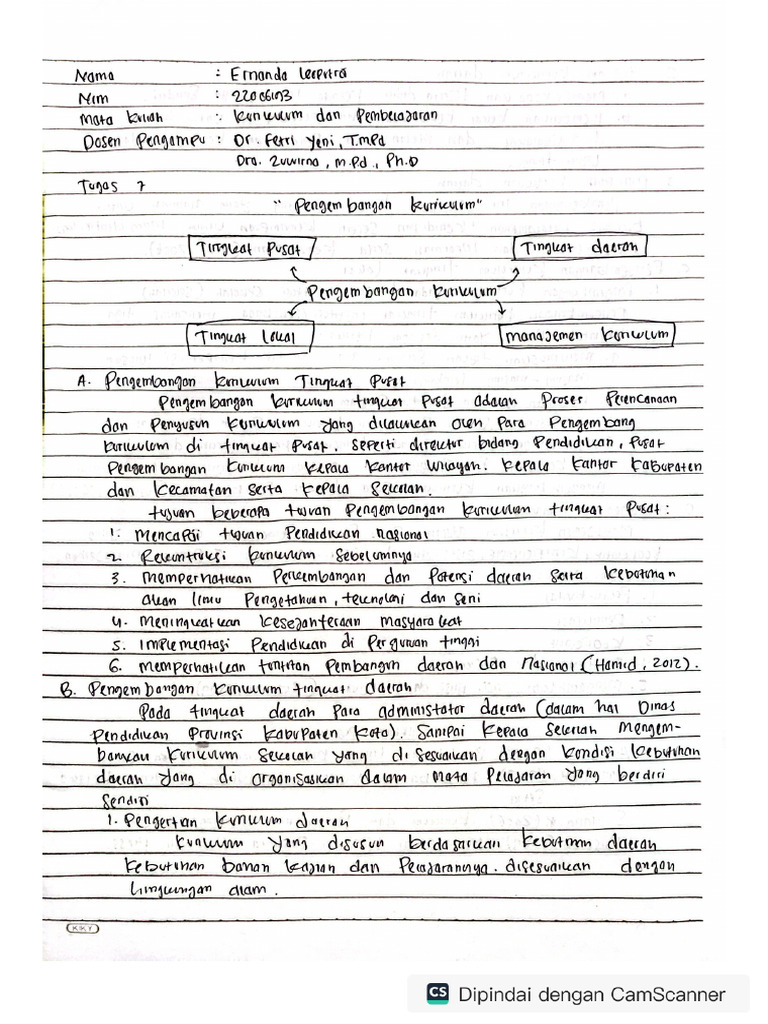 Nama : Ernanda
Nim : 22006103
Mata Kuliah : Kurikulum dan Pembelajaran
Dosen Pengampu : Dr. Fetri Yeni, T.MPd
Dra. Zuwirna, M.Pd., Ph.D
Tugas 7
"Pengembangan Kurikulum"
Tingkat Pusat Tingkat daerah
Pengembangan Kurikulum
Tingkat Lokal Manajemen Kurikulum
A. Pengembangan Kurikulum Tingkat Pusat
Pengembangan kurikulum tingkat pusat adalah Proses Perencanaan
dan Penyusun Kurikulum yang dilakukan oleh Para Pengembang
kurikulum di tingkat Pusat. Seperti direktur bidang Pendidikan, Pusat
Pengembangan Kurikulum Kepala Kantor Wilayah. Kepala Kantor Kabupaten
dan Kecamatan Serta Kepala Sekolah.
tujuan beberapa tujuan Pengembangan Kurikulum tingkat Pusat :
1. Mencapai tujuan Pendidikan nasional
2. Rekontruksi kurikulum Sebelumnya
3. Memperhatikan Perkembangan dan Potensi daerah Serta Kebutuhan
akan Ilmu Pengetahuan, teknologi dan Seni
4. Meningkatkan Kesejahteraan masyarakat
5. Implementasi Pendidikan di Perguruan tinggi
6. Memperhatikan tuntutan Pembangun daerah dan Nasional (Hamid, 2012).
B. Pengembangan Kurikulum tingkat daerah
Pada tingkat daerah Para administator daerah (dalam hal Dinas
Pendidikan Provinsi Kabupaten Kota). Sampai Kepala Sekolah Mengem-
bankan Kurikulum Sekolah yang di sesuaikan dengan Kondisi Kebutuhan
daerah yang di organisasikan dalam mata Pelajaran yang berdiri
Sendiri
1. Pengertian Kurikulum daerah
Kurikulum yang disusun berdasarkan Kebutuhan daerah
Kebutuhan bahan Kajian dan Pelajarannya. disesuaikan dengan
lingkungan alam.
KKY
CS Dipindai dengan CamScanner